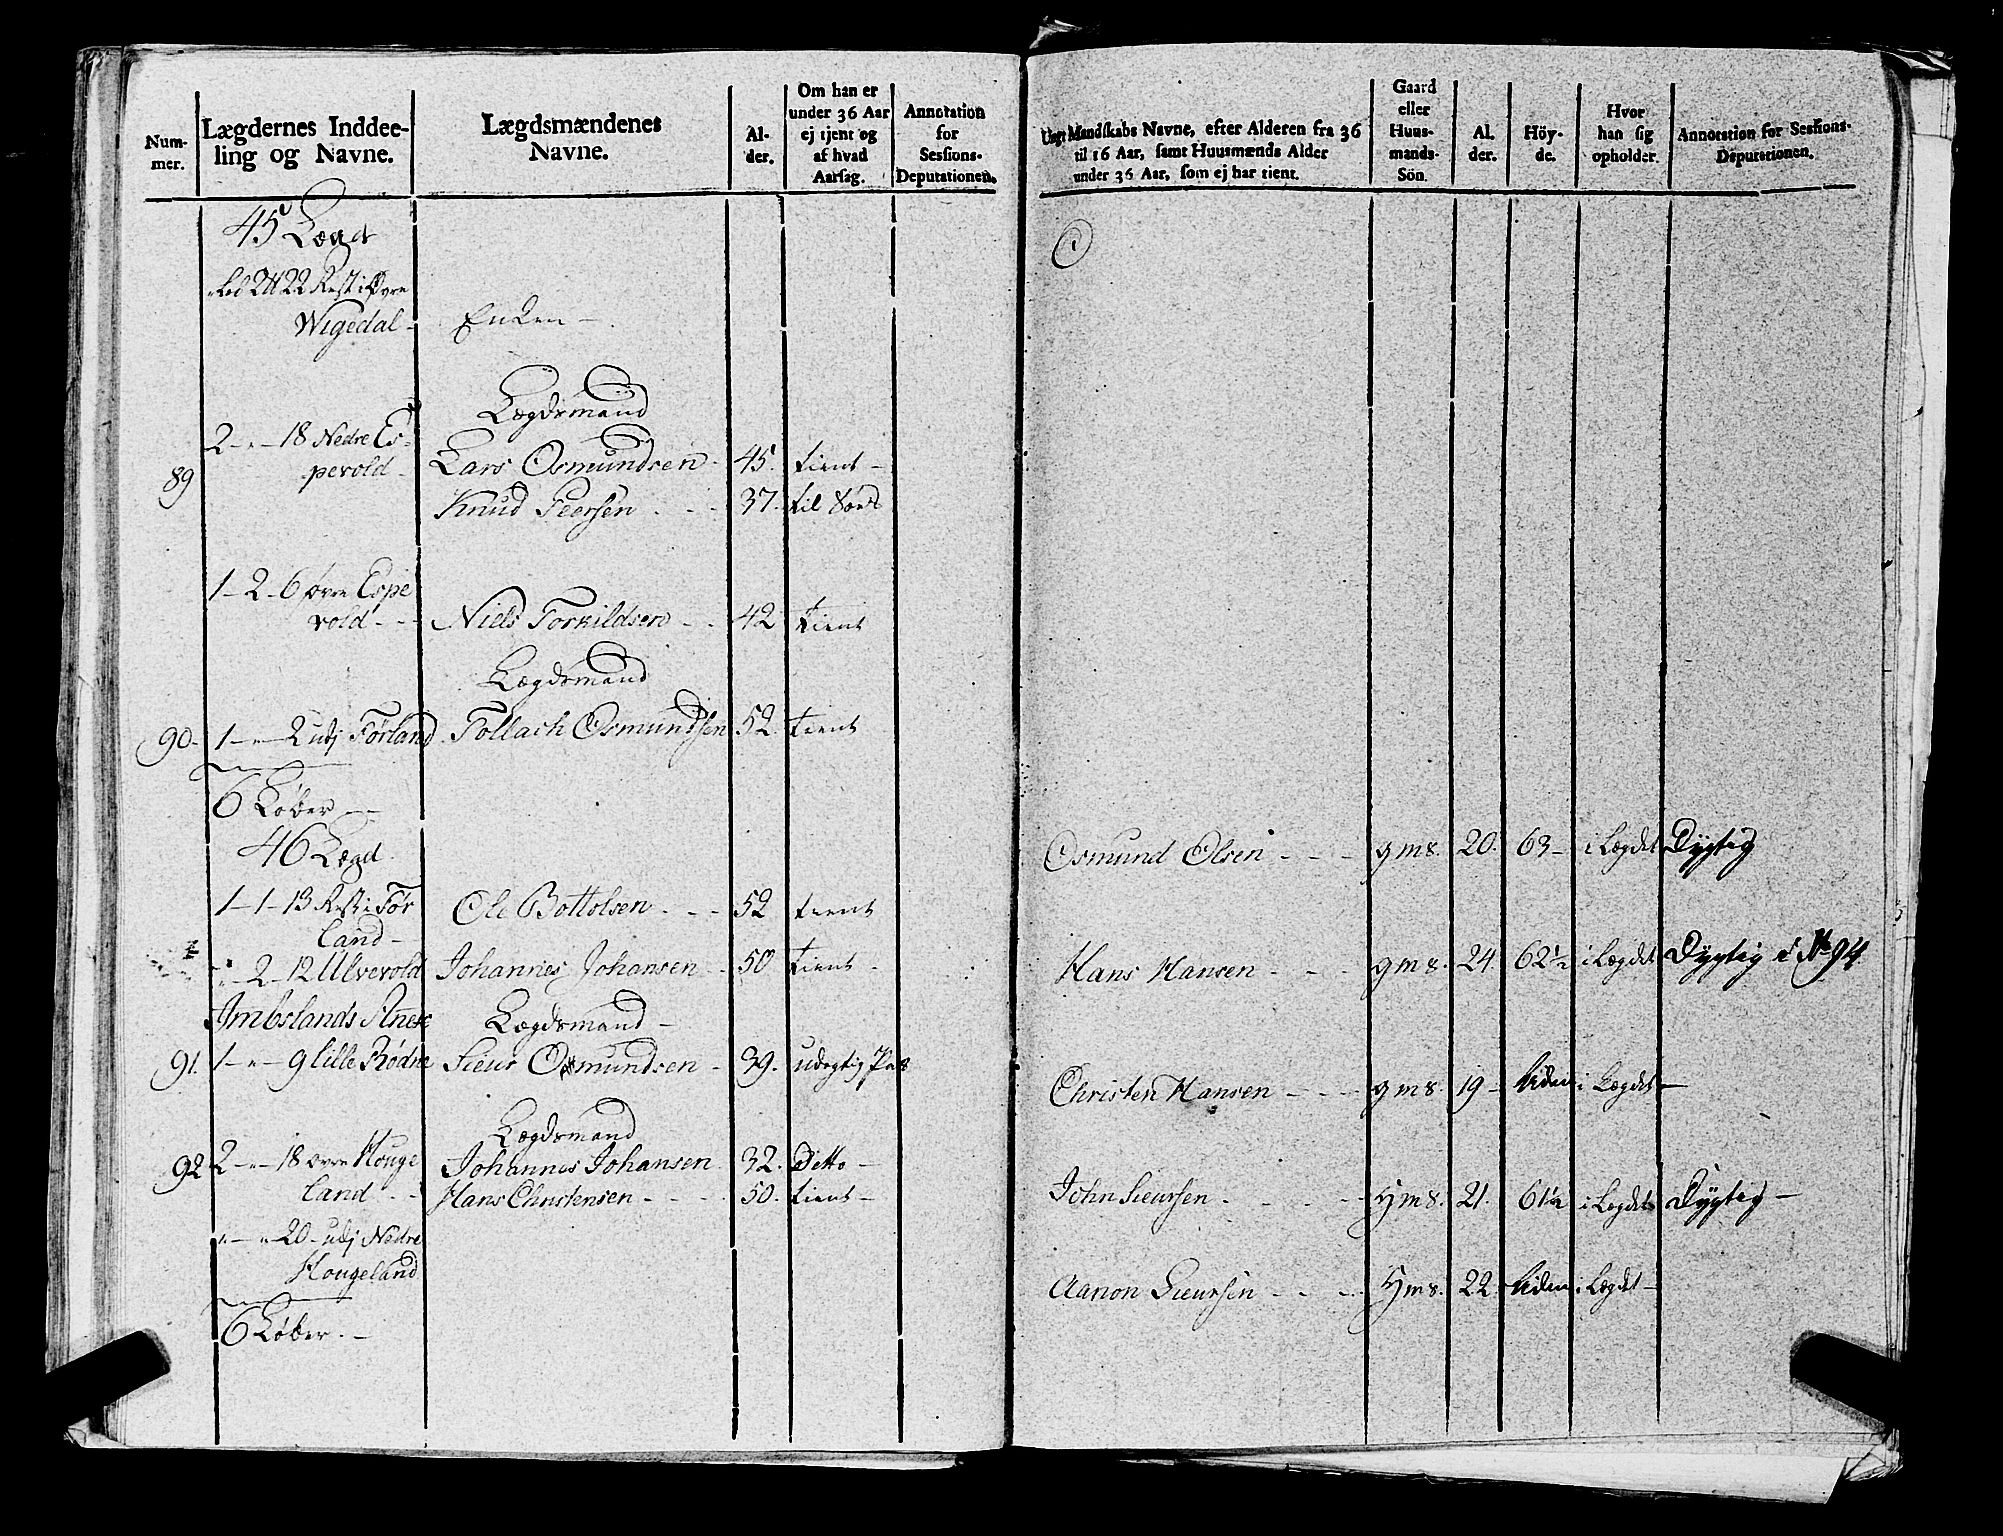 Num-
mer.
Lægdernes Inddee-
ling og Navne.
Lægdsmændenes
Navne.
Al-
der.
Om han er
under 36 Aar
ej tjent og
af hvad
Aarsag.
Annotation
for
Sessions-
Deputationen.
45 Lægd
22 Rest i Øvre
Wigedal - Enken -
Lægdsmand
2 - " - 18 Nedre Es-
89 perold - Lars Osmundsen - 45. tient -
Knud Peersen - - 37. til
1 - 2 - 6 øvre Espe
rold - - - Niels Torkildsen - - 42 tient
Lægdsmand
90 - 1 - " - 2 udj Førland Tollach Osmundsen 52. tient
6 Løber -
46 Lægd.
1 - 1 - 13 Rest i Før
land - Ole Bottolsen - - - 52 tient
" - 2 - 12 Ulverold Johannes Johansen - 50 tient -
Imbslands Anex Lægdsmand -
91. 1 - " - 9 lille Rødne Sieur Osmundsen - 39. udygtig Pas
Lægdsmand
92 2 - " - 18 øvre Houge Johannes Johansen 32. Ditto -
land - - Hans Christensen - - - - 50. tient -
" - " - 20 - udj Nedre
Hougeland
6 Løber. -
Ungt Mandskabs Navne, efter Alderen fra 36
til 16 Aar, samt Huusmænds Alder
under 36 Aar, som ej har tient.
Gaard
eller
Huus-
mands-
Sön.
Al.
der.
Höy-
de.
Hvor
han sig
opholder.
Annotation for Sessions-
Deputationen.
Osmund Olsen - - - g m s. 20. 63 - i Lægdet Dygtig
Hans Hansen - - - g m s. 24 62 1/2 i Lægdet Dygtig i No 94
Christen Hansen - - - g m s. 19 - liden i Lægdet -
John Sieursen - - - H m s. 21. 61 1/2 i Lægdet Dygtig -
Aanon Sieursen - - - H m s. 22 - liden i Lægdet -